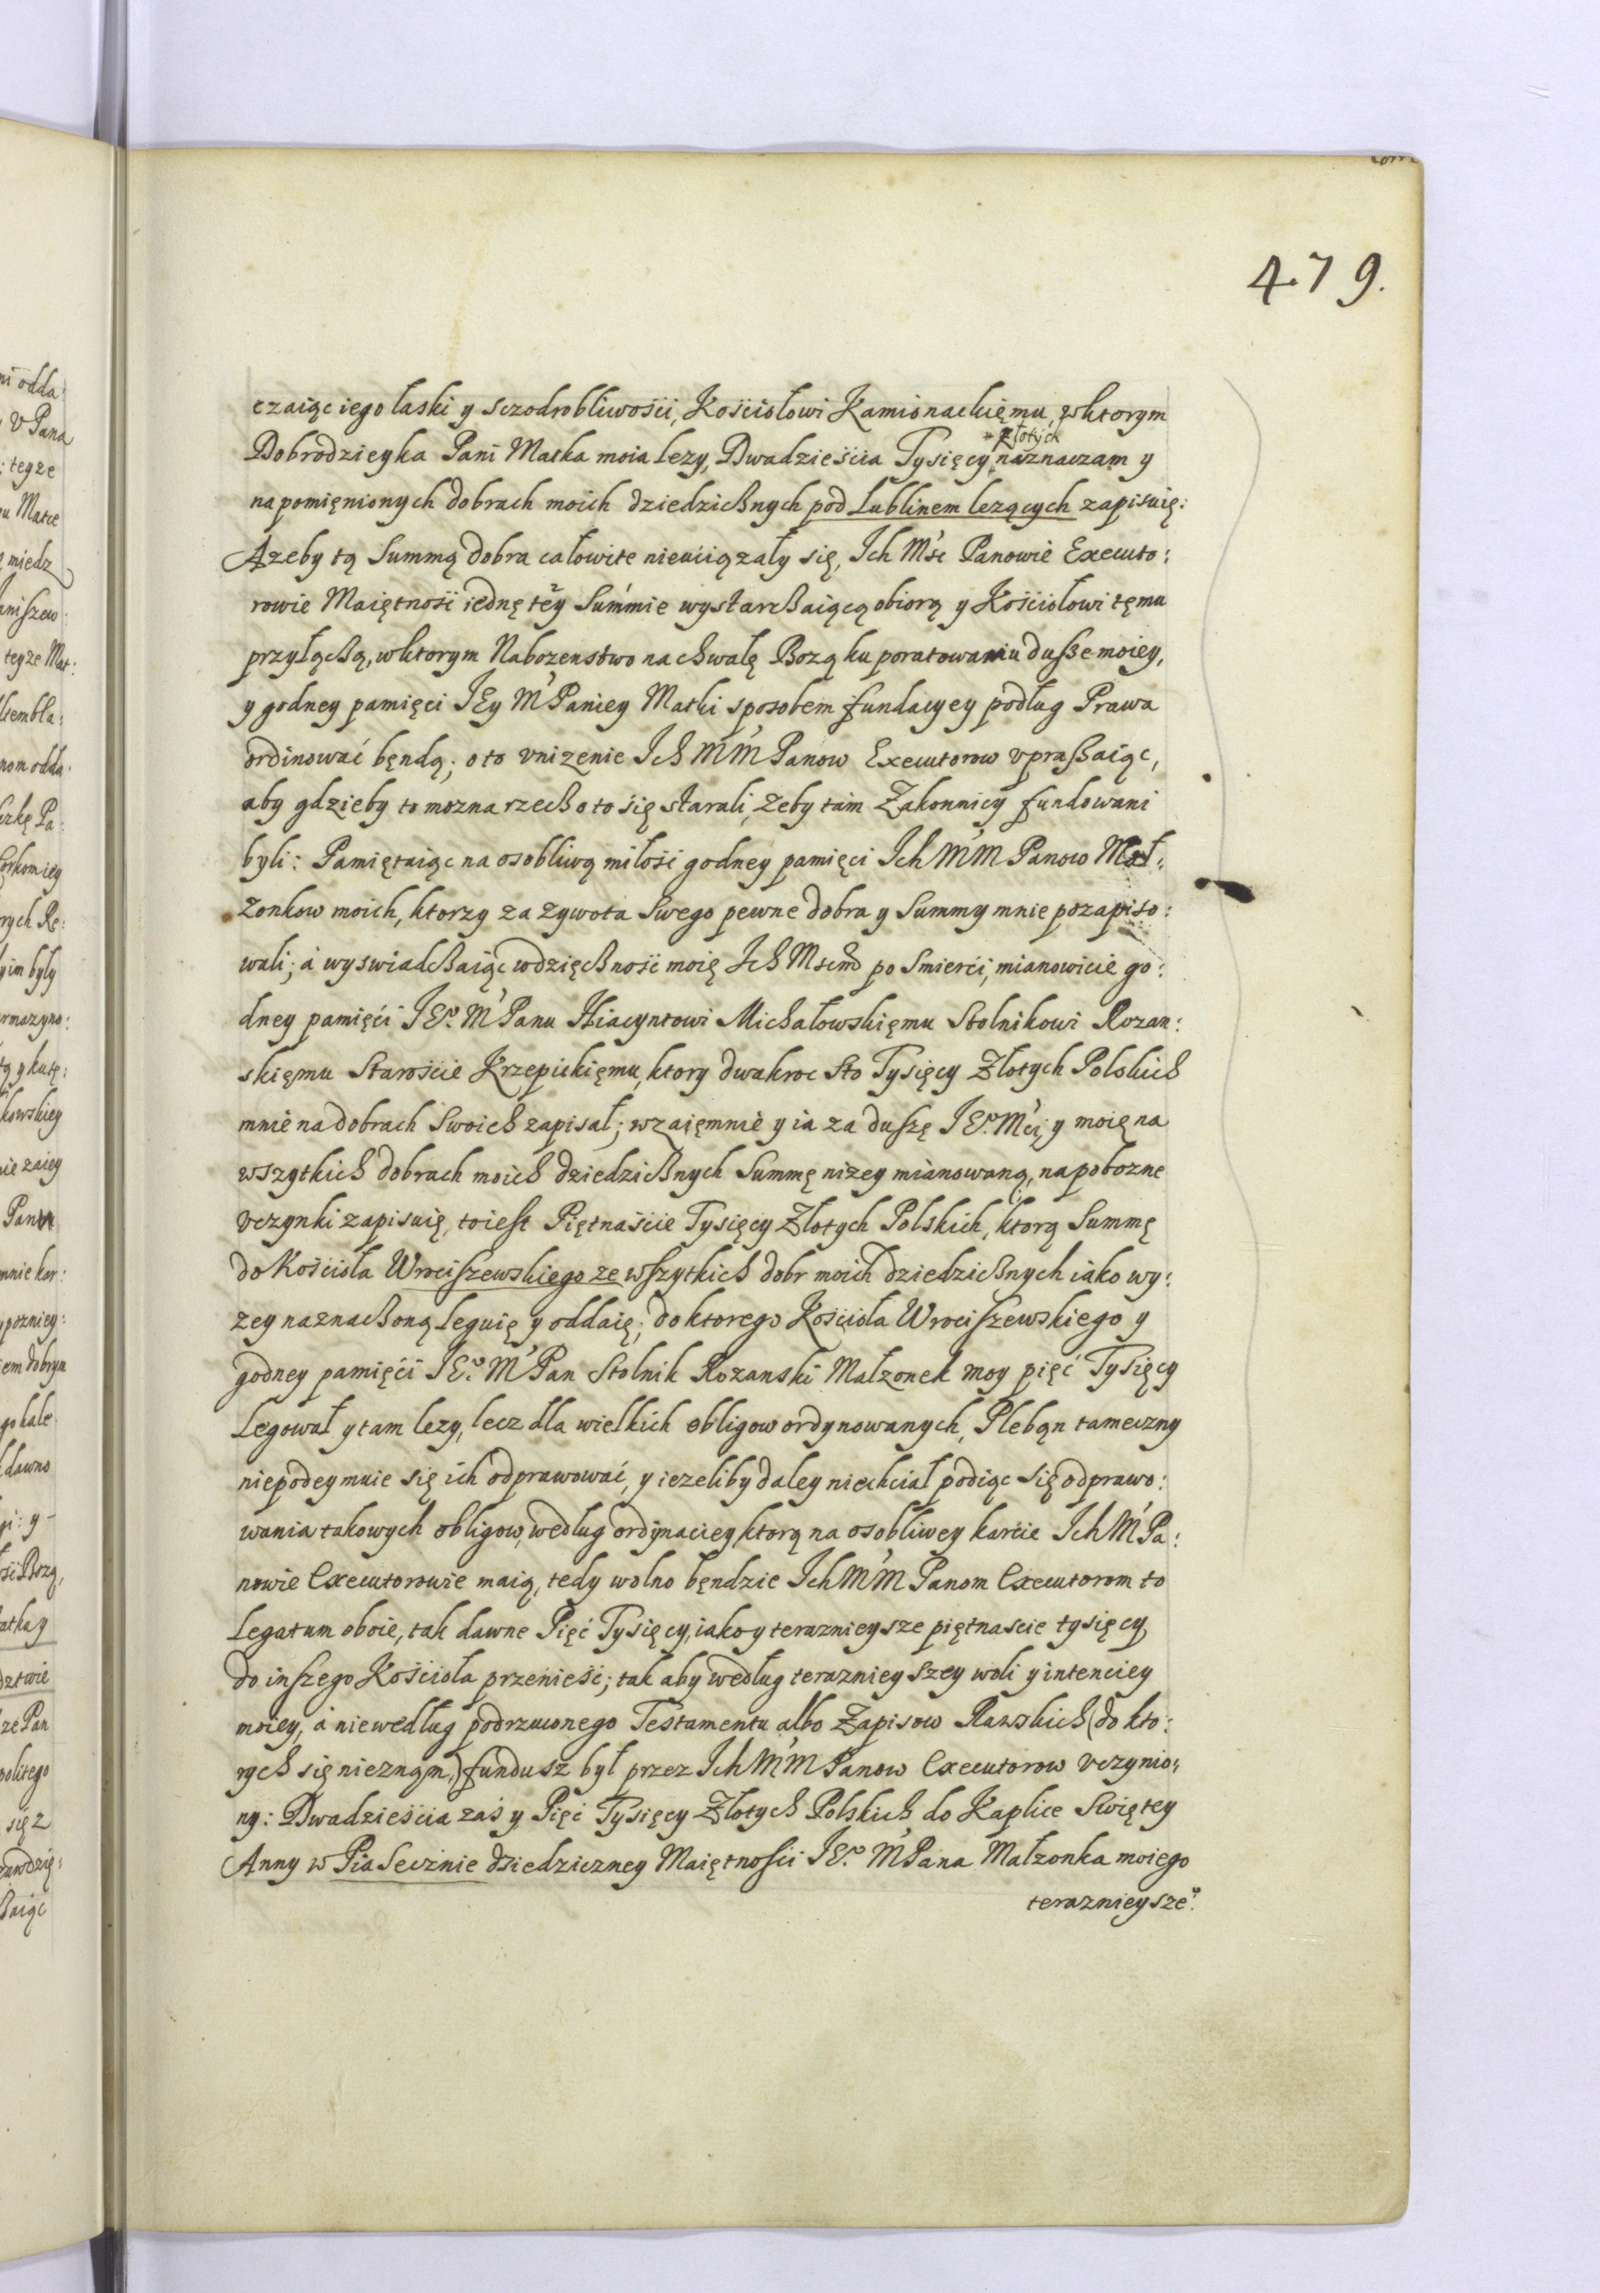 479.
czaiąc iego łaski y sczodrobliwości, Kościołowi Kamionackięmu, wktorym
Dobrodzieyka Pani Matka moia lezy, Dwadzieścia Tysięcy złotych naznaczam y
napomięnionych dobrach moich dziedzicżnych pod Lublinem leżących zapisuię:
Azeby tą Summą dobra całowite nieuciązały się, Ich Mśc Panowie Executo:
rowie Maiętnośi iednę tęy Summie wystarcżaiącą obiorą y Kościołowi tęmu
przyłącżą, wktorym Nabozenstwo na chwałę Bozą ku poratowaniu dusze moiey,
y godney pamięci IEy M Paniey Matki sposobem fundacyey podług Prawa
ordinować będą; oto vnizenie Ich MM Panow Executorow vpraszaiąc,
aby gdzieby to mozna rzecż oto się starali, zeby tam Zakonnicy fundowani
byli: Pamiętaiąc na osobliwą miłość godney pamięci Ich MM Panow Mał:
zonkow moich, ktorzy za zywota Swego pewne dobra y Summy mnie pozapiso:
wali; á wyswiadcżaiąc wdzięcżność moię Ich Mściom po Smierći, mianowicie go:
dney pamięći IEo M Panu Hiacyntowi Michałowskięmu Stolnikowi Rozan:
skięmu Starośćie Krzepickięmu, ktory dwakroc Sto Tysięcy Złotych Polskich
mnie na dobrach Swoich zapisał; wzaięmnie y ia za duszę IEo Mci, y moię na
wszytkich dobrach moich dziedzicżnych Summę nizey mianowaną, na pobozne
vczynki zapisuię, toiest Piętnaście Tysięcy Złotych Polskich, ktorą Summę
do Kościoła Wrociszewskiego ze wszytkich dobr moich dziedzicżnych iako wy:
zey naznacżoną Leguię y oddaię; do ktorego Kościoła Wrociszewskiego y
godney pamięći IEo M Pan Stolnik Rozanski Małzonek moy pięć Tysięcy
Legował y tam lezy, lecz dla wielkich obligow ordynowanych, Plebąn tameczny
niepodeymuie się ich odprawować, y iezeliby daley niechciał podiąc się odprawo:
wania takowych obligow, według ordynaciey ktorą na osobliwey karćie Ich M Pa:
nowie Executorowie maią, tedy wolno będzie Ich MM Panom Executorom to
Legatum oboie, tak dawne Pięć Tysięcy, iako y teraznieysze piętnascie tysięcy,
do inszego Kościoła przenieść; tak aby według teraznieyszey woli y intenciey
moiey, á niewedług podrzuconego Testamentu albo Zapisow Rawskich (do kto:
rych się nieznąm,) fundusz był przez Ich MM Panow Executorow vczynio:
ny: Dwadzieścia zaś y Pięć Tysięcy Złotych Polskich do Kaplice Swiętey
Anny w Piasecznie dziedziczney Maiętności IEo M Pana Małzonka moiego
teraznieysze: